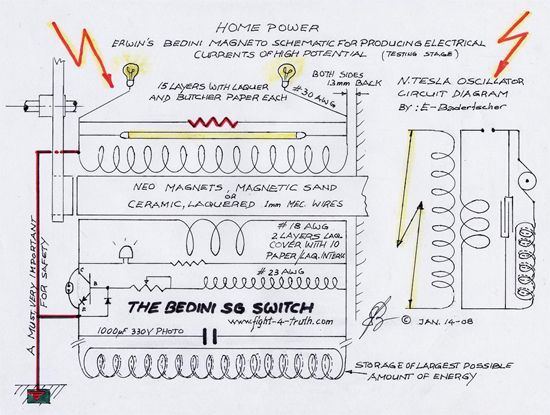 HOME POWER
ERWIN'S BEDINI MAGNETO SCHEMATIC FOR PRODUCING ELECTRICAL
CURRENTS OF HIGH POTENTIAL (TESTING STAGE)
15 LAYERS WITH LAQUER
AND BUTCHER PAPER EACH
# 30 AWG
BOTH SIDES
13mm BACK
N. TESLA OSCILLATOR
CIRCUIT DIAGRAM
BY: E-Badertscher
NEO MAGNETS, MAGNETIC SAND
OR
CERAMIC, LAQUERED 1mm MEC. WIRES
# 18 AWG
2 LAYERS LAQ.
COVER WITH 10
PAPER/LAQ. INTERW.
# 23 AWG
A MUST, VERY IMPORTANT
FOR SAFETY
C
B
E
THE BEDINI SG SWITCH
www.fight-4-truth.com
1000µF 330V PHOTO
© JAN. 14-08
STORAGE OF LARGEST POSSIBLE
AMOUNT OF ENERGY